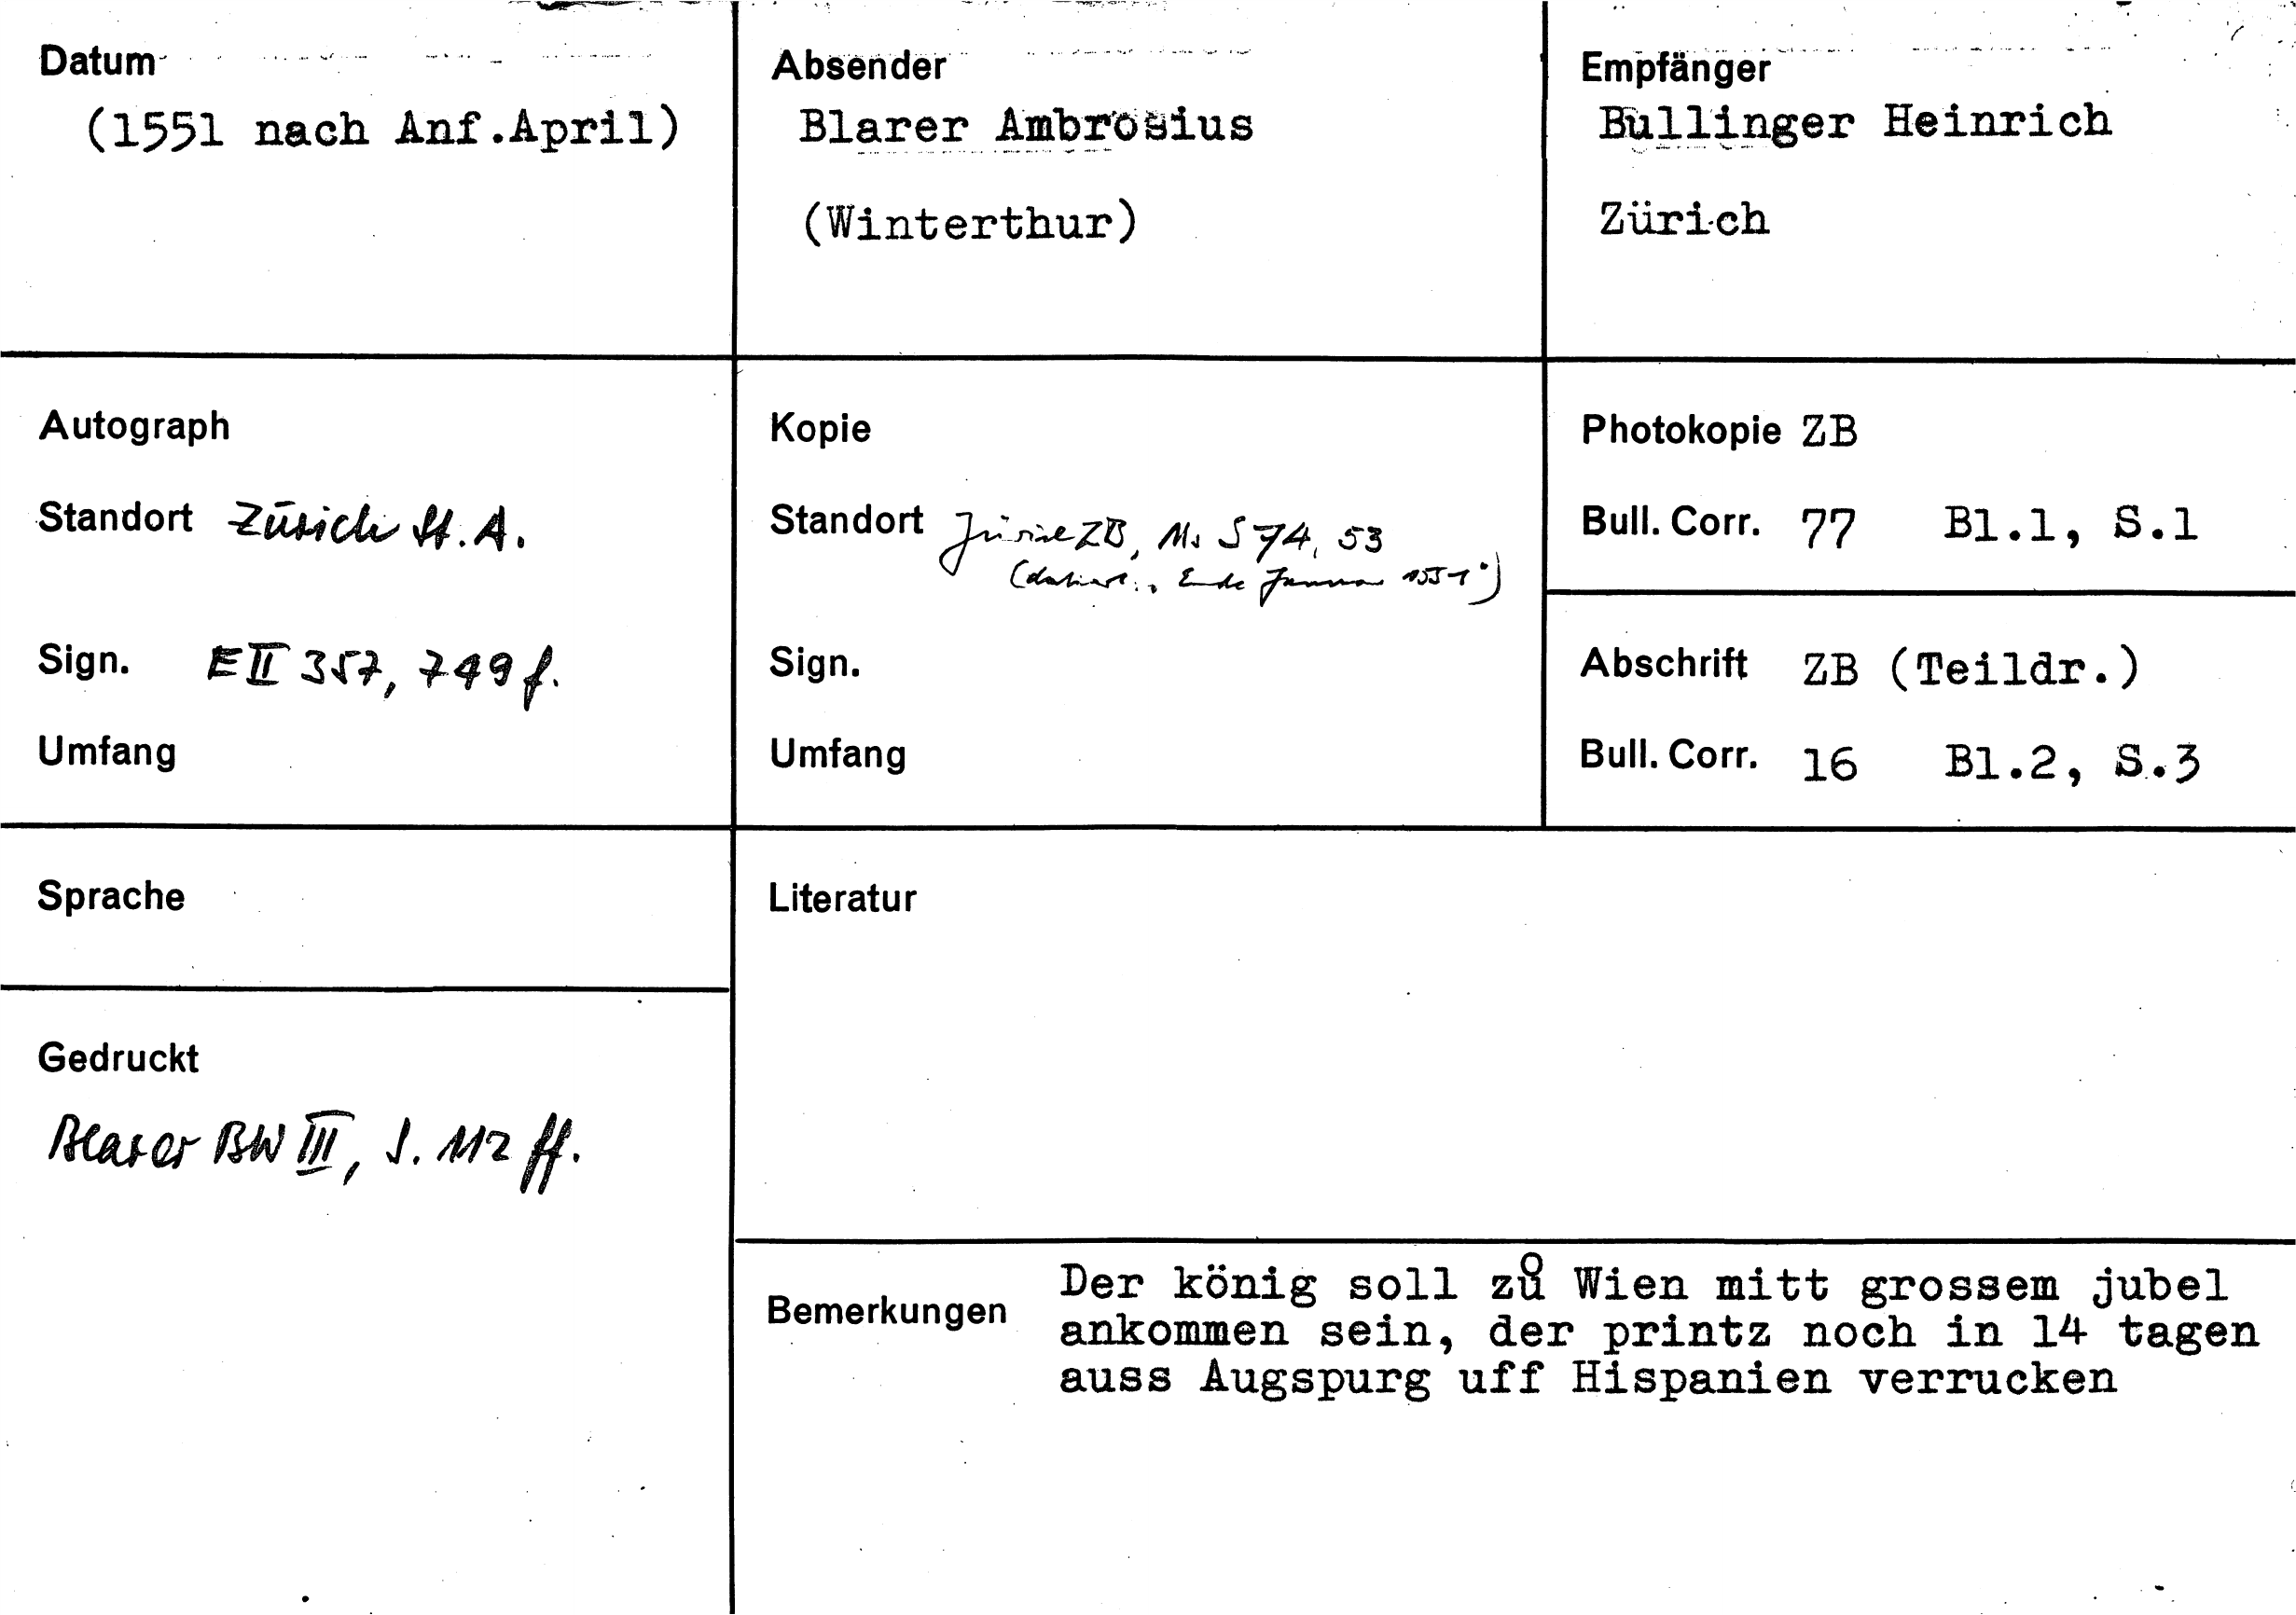 Datum
(1551 nach Anf.April)
Absender
Blarer Ambrosius
(Winterthur)
Empfänger
Bullinger Heinrich
Zürich
Autograph
Standort Zürich St.A.
Sign. E II 357, 749 f.
Umfang
Kopie
Standort Zürich ZB, Ms S 74, 53
(datiert: "Ende Januar 1551")
Sign.
Umfang
Photokopie ZB
Bull. Corr. 77 Bl.1, S.1
Abschrift ZB (Teildr.)
Bull. Corr. 16 Bl.2, S.3
Sprache
Gedruckt
Blarer BW III, S. 112 ff.
Literatur
Bemerkungen
Der könig soll zů Wien mitt grossem jubel
ankommen sein, der printz noch in 14 tagen
auss Augspurg uff Hispanien verrucken